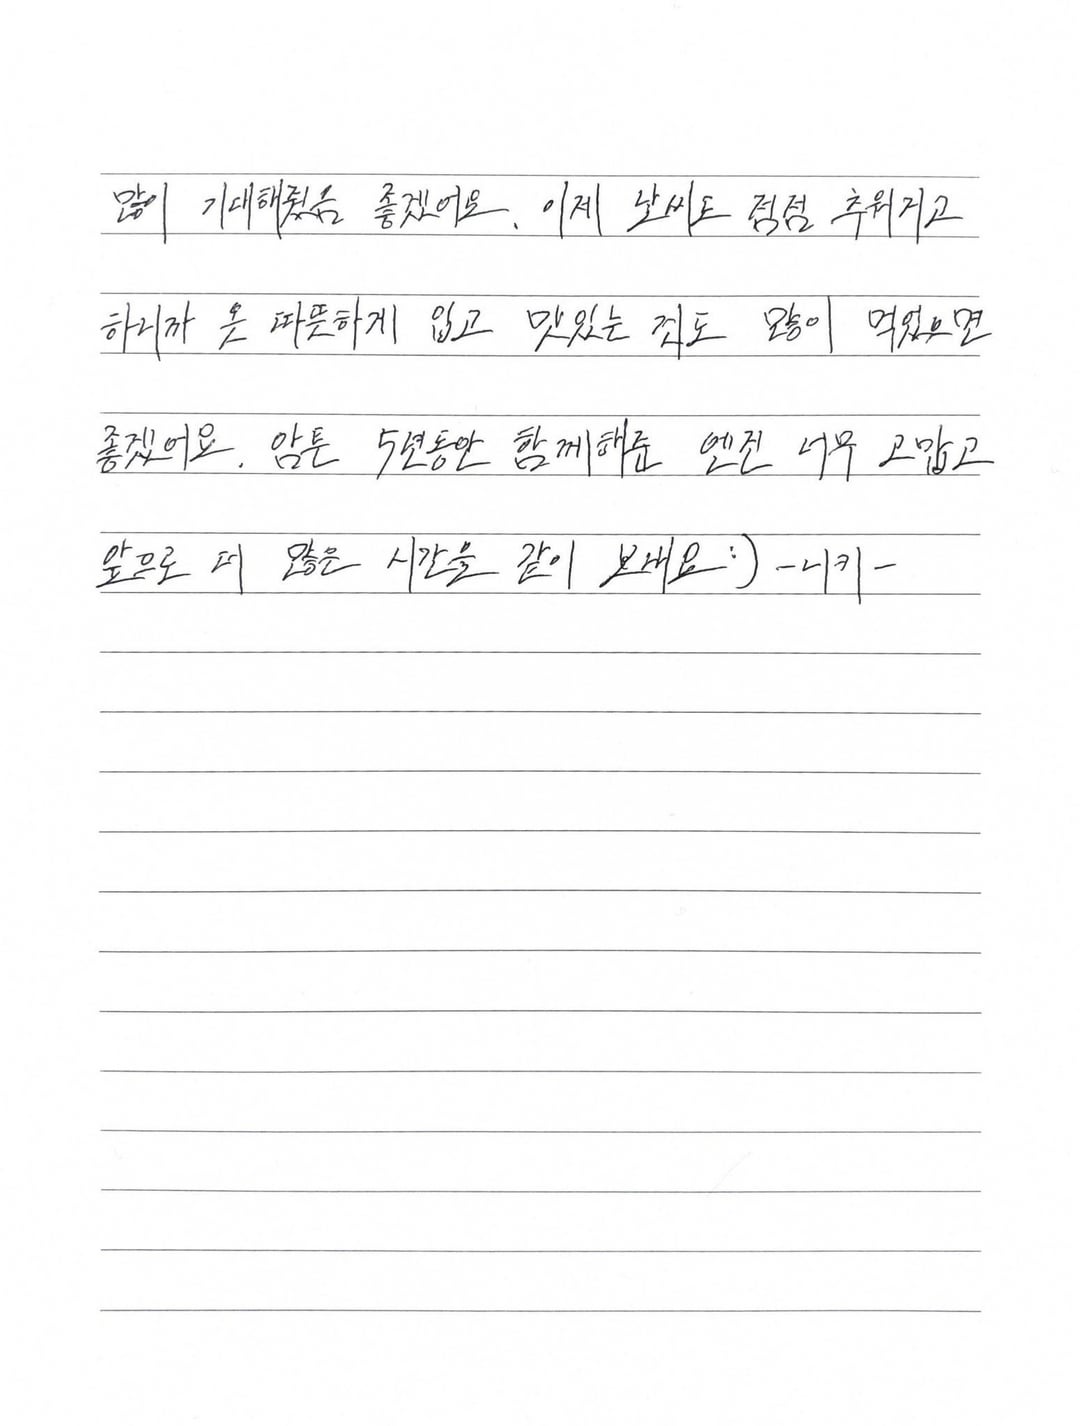 많이 기대해줬음 좋겠어요. 이제 날씨도 점점 추워지고
하니까 옷 따뜻하게 입고 맛있는 것도 많이 먹었으면
좋겠어요. 암튼 5년동안 함께해준 엔진 너무 고맙고
앞으로 더 많은 시간을 같이 보내요:) -니키-